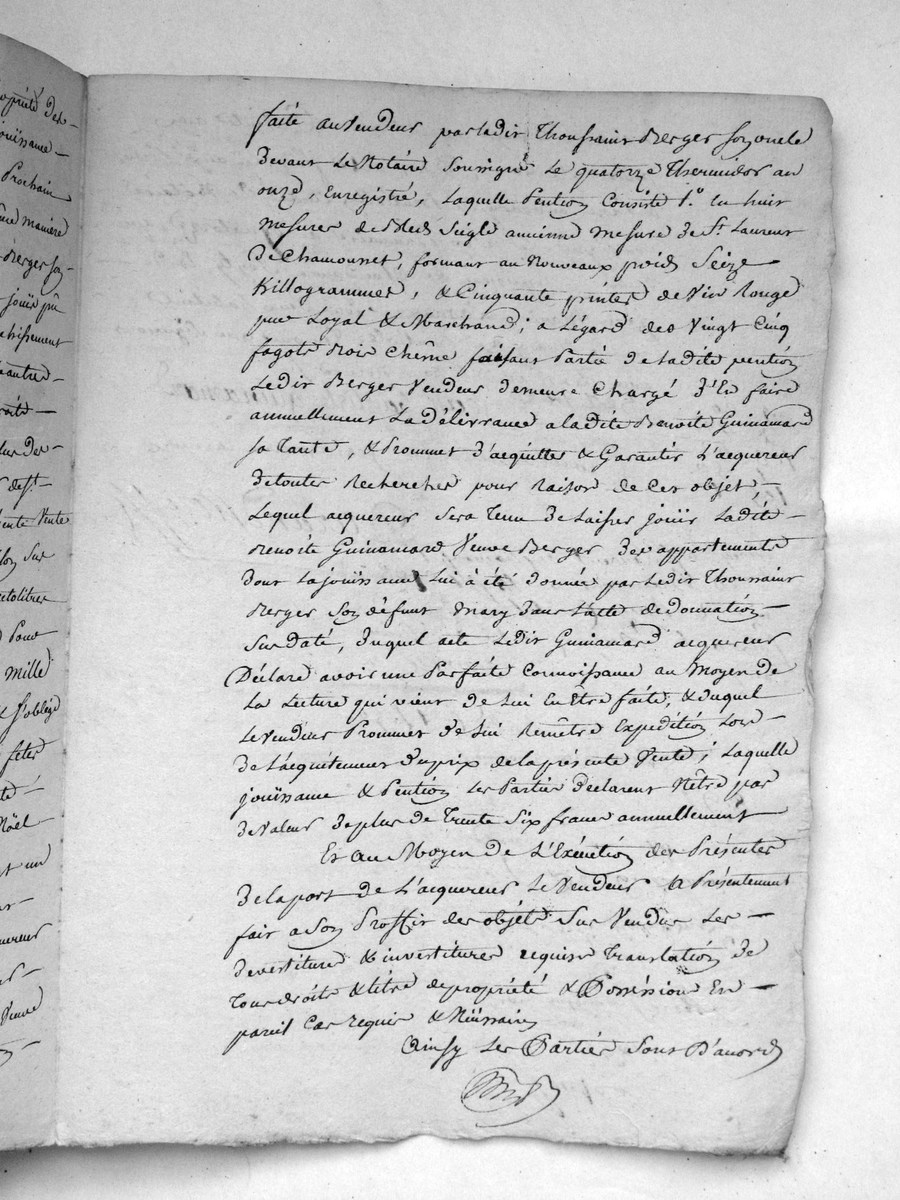 opriété des-
ouissance -
Prochain
me manière
Berger son-
jouir pu
chissement
éautre-
oité -
lus des-
dest.
ente Vente
lon sur
ctolitres
Pour
mille
& s'oblige
fetes
té -
Noël
t un
ur -
quereur
s -
Veuve
faite au Vendeur par ladit Thoussaint Berger son oncle
devant Le Notaire Soussigné Le quatorze Thermidor an
onze, Enregistré, Laquelle Pention Consiste 1.° En huit
mesures de Bled Seigle ancienne mesure de St. Laurent
de Chamousset, formant au Nouveaux poids Seize
Killogrammes, & Cinquante pintes de Vin Rouge
pur Loyal & Marchand; a Légard des Vingt Cinq
fagots Bois Chêne faisant Partie de Ladite pention
Ledit Berger Vendeur demeure Chargé d'En faire
annuellement La Délivrance a la dite Benoite Guinamard
sa Tante, & Prommet d'acquitter & Garantir L'acquereur
de toutes Recherches pour Raison de Cet objet,
Lequel acquereur Sera Tenu de Laisser jouir Ladite -
Benoite Guinamard Veuve Berger des appartements
dont La jouissance Lui à été donnée par Ledit Thoussaint
Berger Son défunt mary dans L'acte de donnation -
Sus daté, duquel acte Ledit Guinamard acquereur
Déclare avoir une Parfaite Connoissance au Moyen de
La Lecture qui vient de Lui En Être faite, & duquel
Le vendeur Prommet de Lui Remêtre Expedition Lors -
de L'acquitement du prix de la présente Vente; Laquelle
jouissance & Pention Les Parties déclarent N'être pas
de Valeur de plus de Trente Six francs annuellement
Et au Moyen de L'Exécution des Présentes
de la part de L'acquereur Le Vendeur a Présentement
fait a Son Proffit des objets Sus Vendus Les -
devestiture & investitures requise Translation de
Tous droits & titre de propriété & Possession En -
pareil Cas requis & Nécessaire
Ainsy Les Parties Sont D'accord